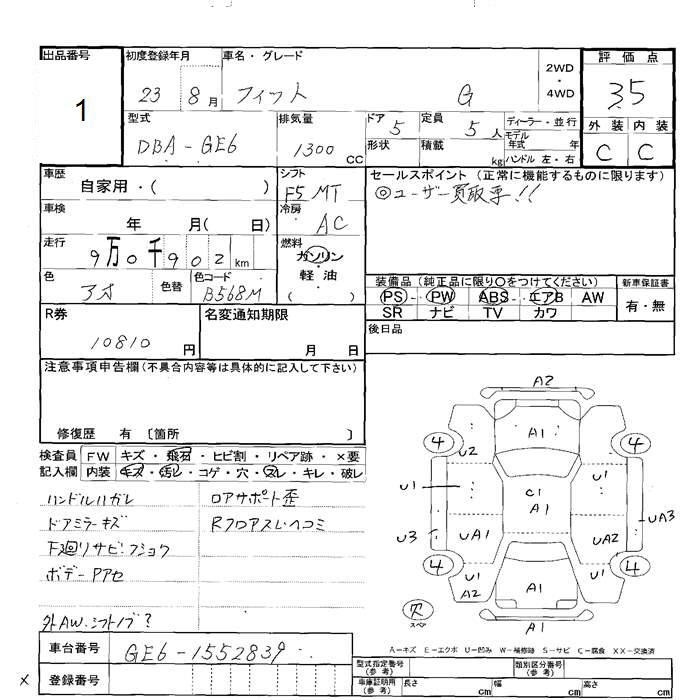 出品番号
1
初度登録年月
23 8月
車名・グレード
フィット G
2WD
・
4WD
評価点
3.5
外装 内装
C C
型式
DBA-GE6
排気量
1300 CC
ドア 5
形状
定員 5人
積載 kg
ディーラー・並行
モデル年式 年
ハンドル 左・右
車歴
自家用・( )
シフト
F5 MT
セールスポイント(正常に機能するものに限ります)
◎ユーザー買取車!!
車検
年 月( 日)
冷房
AC
走行
9万0千902km
燃料
ガソリン
軽油
( )
色
アオ
色替
色コード
B568M
装備品(純正品に限り○をつけてください)
PS・PW・ABS・エアB AW
SR ナビ TV カワ
新車保証書
有・無
R券
10810円
名変通知期限
月 日
後日品
注意事項申告欄(不具合内容等は具体的に記入して下さい)
修復歴 有 〔箇所 〕
検査員記入欄
FW キズ・飛石・ヒビ割・リペア跡・×要
内装 キズ・汚レ・コゲ・穴・スレ・キレ・破レ
ハンドルハガレ
ロアサポート歪
ドアミラーキズ
Rフロアスレヘコミ
下廻リサビ・フショク
ボデーPアセ
外AW・シフトノブ?
A2
4 A1 4
U2 U1
U1 C1
A1
UA3
U3 UA1 UA2
4 4
U1 U1
A2 A1
欠
スペア
A1
A-キズ E-エクボ U-凹み W-補修跡 S-サビ C-腐食 XX-交換済
車台番号
GE6-1552839
× 登録番号
型式指定番号(参考)
類別区分番号(参考)
車庫証明用(参考)
長さ cm 幅 cm 高さ cm